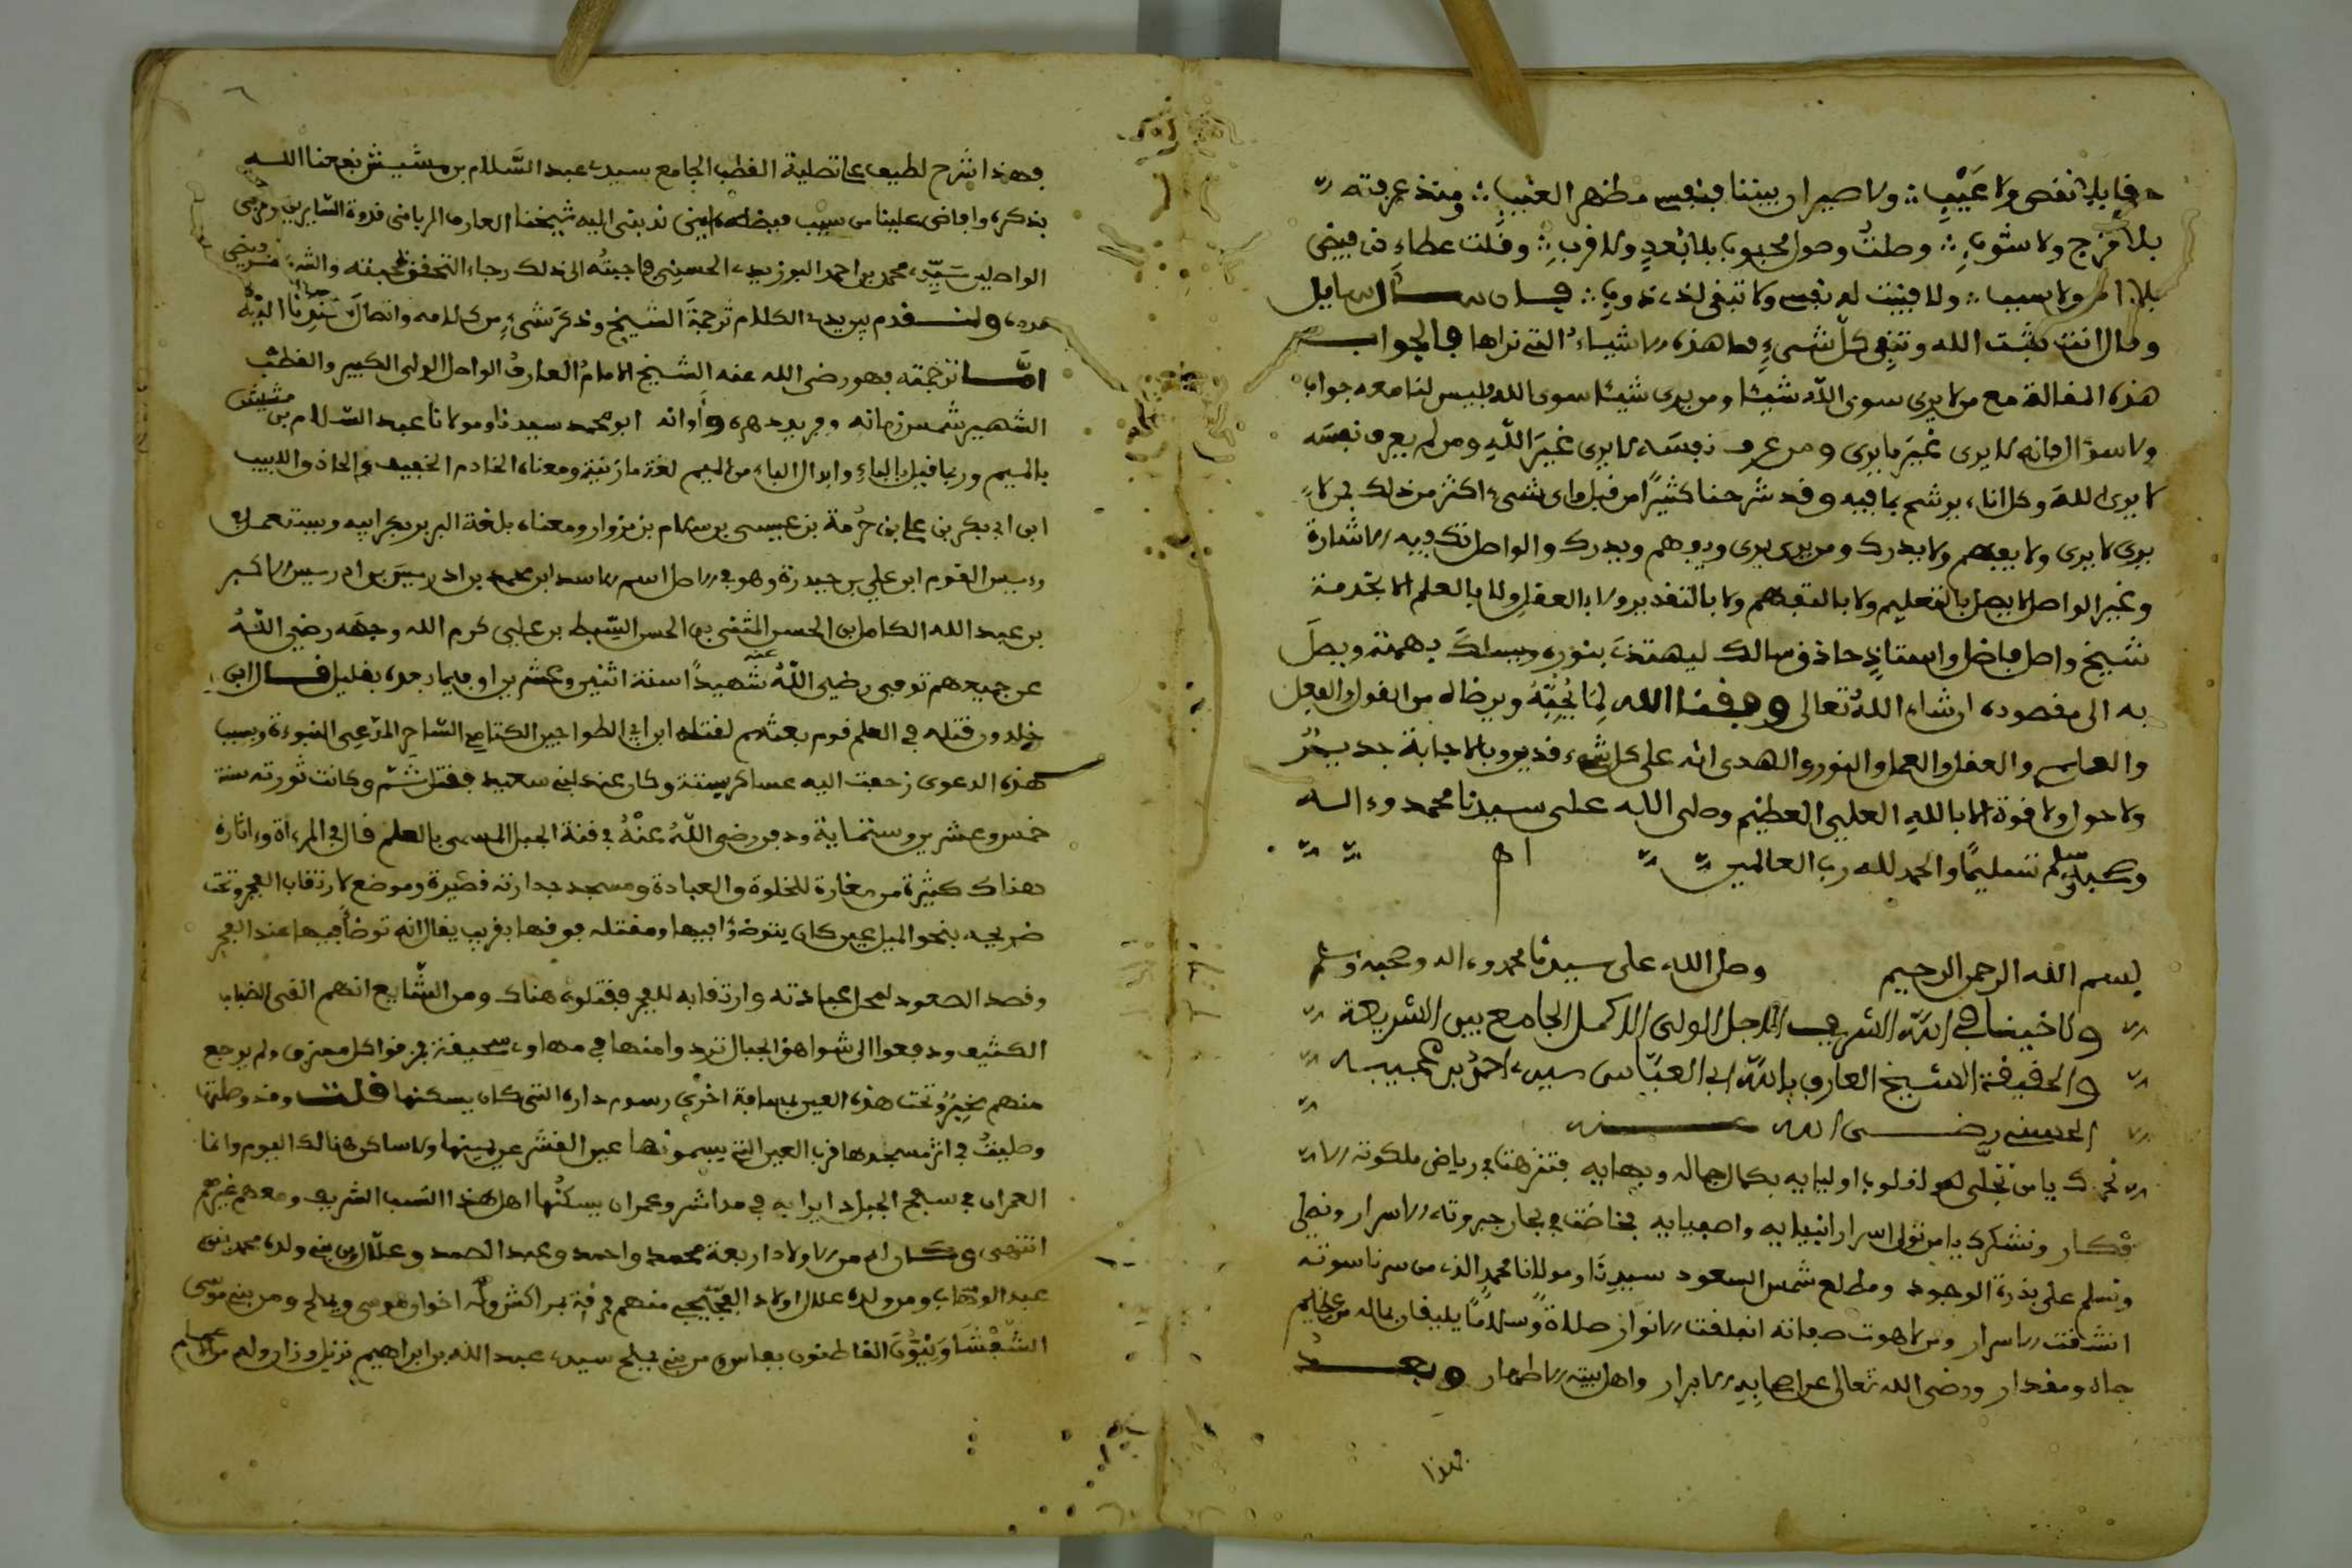 حقا بلا نقص ولا عيب ∴ ولا صير ان بيننا فبنفسى مظهر الغيب ∴ ومنذ عرفته
بلا مزج ولا شوب ∴ وصلتُ وصول محبوب بلا بُعدٍ ولا قرب ∴ ونلت عطاء ذى فيض
ولا سبب ∴ ولا فنيت له نفسى ولا تبقى لذى ذوب ∴ فان سأل سايل
وقال انت تثبت الله وتنفى كل شىءٍ فما هذه الاشياءُ التى نراها فالجواب
هذه المقالة مع من لا يرى سوى الله شيئا ومن يرى شيئا سوى الله فليس لنا معه جواب
ولا سؤال فانه لا يرى غيرَ ما يرى ومن عرف نفسَه لا يرى غيرَ اللّهِ ومن لم يعرف نفسَه
لا يرى اللهَ وكل اناء يرشح بما فيه وقد شرحنا كثيرًا من قبل واى شىء اكثر من ذلك فمن لا
يرى لا يرى ولا يفهم ولا يدرك ومن يرى يرى ويفهم ويدرك والواصل تكفيه الاشارة
وغير الواصل لا يصل بالتعليم ولا بالتفهم ولا بالتقدير ولا بالعقل ولا بالعلم الا بخدمة
شيخ واصل فاضل واستاذٍ حاذق سالك ليهتدىَ بنوره ويسلكَ بهمته ويصلَ
به الى مقصوده ان شاء اللهُ تعالى وفقنا الله لِمَا يُحِبُّهُ ويرضاه من القول والفعل
والعلم والعقل والعمل والنور والهدى انه على كل شىء قدير وبالاجابة جديرٌ
ولا حول ولا قوة الا باللهِ العلىِ العظيمِ وصلى الله على سيدنا محمد وءاله
وصحبه وسلم تسليمًا والحمد لله رب العالمين اهـ
بسم الله الرحمن الرحيم وصلى الله على سيدنا محمد وءاله وصحبه وسلم
ولاخينا فى اللّه الشريف الاجل الولى الاكمل الجامع بين الشريعة
والحقيقة الشيخ العارف باللّه ابى العبّاس سيدى احمد بن عجيبه
الحسنى رضى الله عنه
نحمدك يا من تجلّى لقلوب اوليايه بكمال جماله وبهايه فتنزهت فى رياض ملكوته الا
فكار ونشكرك يا من تولى اسرار انبيايه واصفيايه فخاضت فى بحار جبروته الاسرار ونصلى
ونسلم على بذرة الوجود ومطلع شمس السعود سيدِنَا ومولانا محمدٍ الذى من سر ناسوته
انشقت الاسرار ومن لاهوت صفاته انفلقت الانوار صلاةً وسلامًا يليقان بماله من عظيم
جاه ومقدار ورضى الله تعالى عن اصحابِه الابرار واهل بيته الاطهار وبعد
فهذا
٦
فهذا شرح لطيف على تصلية القطب الجامع سيدى عبد السَّلام بن مشيش نفعنا الله
بذكره وافاض علينا من سيب فيضه ندبنى اليه شيخنا العارف الربانى قدوة السّايرين ومربى
الواصلين سَيِّدى محمد بن احمد البوزيدى الحسنى فاجبتُه الى ذلك رجاء التحقق بمحبته
ولنقدم بين يدى الكلام ترجمةَ الشيخ وذكرَ شىءٍ من كلامه واتصالَ سَنَدِنا اليْه
امّا ترجمته فهو رضى الله عنه الشيخ الامامُ العارفُ الواصل الولى الكبير والقطب
الشهير شمس زمانه وفريد دهره وأوانه ابو محمد سيدنا ومولانا عبد السّلام بن مشيش
بالميم وربما قيل بالباءِ وابدال الباء من الميم لغة مازنية ومعناه الخادم الخفيف والحاذق اللبيب
ابن ابى بكر بن على بن حُرمة بن عيسى بن سلام بن مزوار ومعناه بلغة البربر بكر ابيه
ورييس القوم ابن على بن حيدرة وهو فى الاصل اسم الاسد ابن محمد بن ادريس بن ادريس الاكبر
بن عبد الله الكامل بن الحسن المثنى بن الحسن السّبط بن على كرم الله وجهَه رضى اللّهُ
عن جميعهم توفى رضى اللّهُ عنه شهيدًا سنة اثنين وعشرين او فيما بعده بقليل قال ابن
خلدون قتله فى العلم قوم بعثهم لقتله ابن ابى الطواجين الكتامى السّاحر المدّعى النبوءة وبسبب
هذه الدعوى زحفت اليه عساكر سبتة وكان عند بنى سعيد فقتل ثَمَّ وكانت ثورته سنة
خمس وعشرين وستماية ودفن رضى اللّهُ عنْهُ فى قنة الجبل المسمى بالعلم قال فى المرءاة وءاثاره
هناك كثيرة من مغارة للخلوة والعبادة ومسجد جداراته قصيرة وموضع لارتقاب الفجر وتحت
ضريحه بنحو الميل عين كان يتوضؤا فيها ومقتله فوقها بقريب يقال انه توضأ فيها عند الفجر
وقصد الصعود لمحل عبادته وارتقابه للفجر فقتلوه هناك ومن الشّايع انهم القى الضباب
الكثيف ودفعوا الى شواهق الجبال تردوا منها فى مهاوى سحيقة مزقوا كل ممزق ولم يرجع
منهم مخبِرٌ وتحت هذه العين بمسافة اخرى رسوم داره التى كان يسكنها قلت وقد وصلتها
وصليتُ فى اثر مسجدها قرب العين التى يسمونها عين القشر عن يمينها ولا ساكن هنالك اليوم وانما
العمران فى سفح الجبل دايرا به فى مداشر وعمران يسكنُها اهل هذا النّسب الشريف ومعهم غيرهم
انتهى وكان له من الاولاد اربعة محمد واحمد وعبد الصمد وعلّال بن بنى ولده محمد بنى
عبد الوهّاب ومن ولده علال اولاد الفجّيجى منهم فرقة بمراكش وله اخوان موسى ويملح ومن بنى موسى
الشّفْشَاوَنِيُّونَ القاطنون بفاس ومن بنى يملح سيدى عبد الله بن ابراهيم نزيل وزان وله من الاعمام